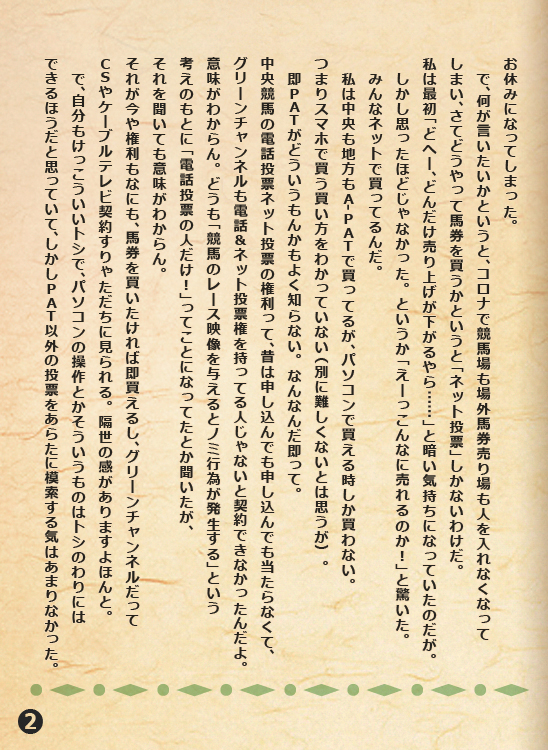 お休みになってしまった。
で、何が言いたいかというと、コロナで競馬場も場外馬券売り場も人を入れなくなって
しまい、さてどうやって馬券を買うかというと「ネット投票」しかないわけだ。
私は最初「どへー、どんだけ売り上げが下がるやら……」と暗い気持ちになっていたのだが。
しかし思ったほどじゃなかった。というか「えーっこんなに売れるのか！」と驚いた。
みんなネットで買ってるんだ。
私は中央も地方もA-PATで買ってるが、パソコンで買える時しか買わない。
つまりスマホで買う買い方をわかっていない（別に難しくないとは思うが）。
即PATがどういうもんかもよく知らない。なんなんだ即って。
中央競馬の電話投票ネット投票の権利って、昔は申し込んでも申し込んでも当たらなくて、
グリーンチャンネルも電話&ネット投票権を持ってる人じゃないと契約できなかったんだよ。
意味がわからん。どうも「競馬のレース映像を与えるとノミ行為が発生する」という
考えのもとに「電話投票の人だけ！」ってことになってたとか聞いたが、
それを聞いても意味がわからん。
それが今や権利もなにも、馬券を買いたければ即買えるし、グリーンチャンネルだって
CSやケーブルテレビ契約すりゃただちに見られる。隔世の感がありますよほんと。
で、自分もけっこういいトシで、パソコンの操作とかそういうものはトシのわりには
できるほうだと思っていて、しかしPAT以外の投票をあらたに模索する気はあまりなかった。
2